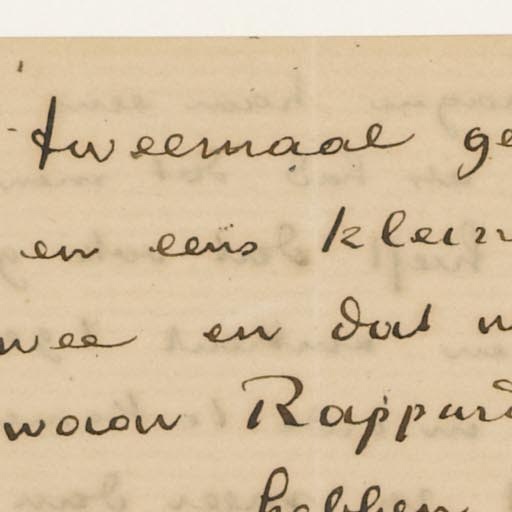 tweemaal ge
en eens klein
wee en dat
waan Rappard
hebben